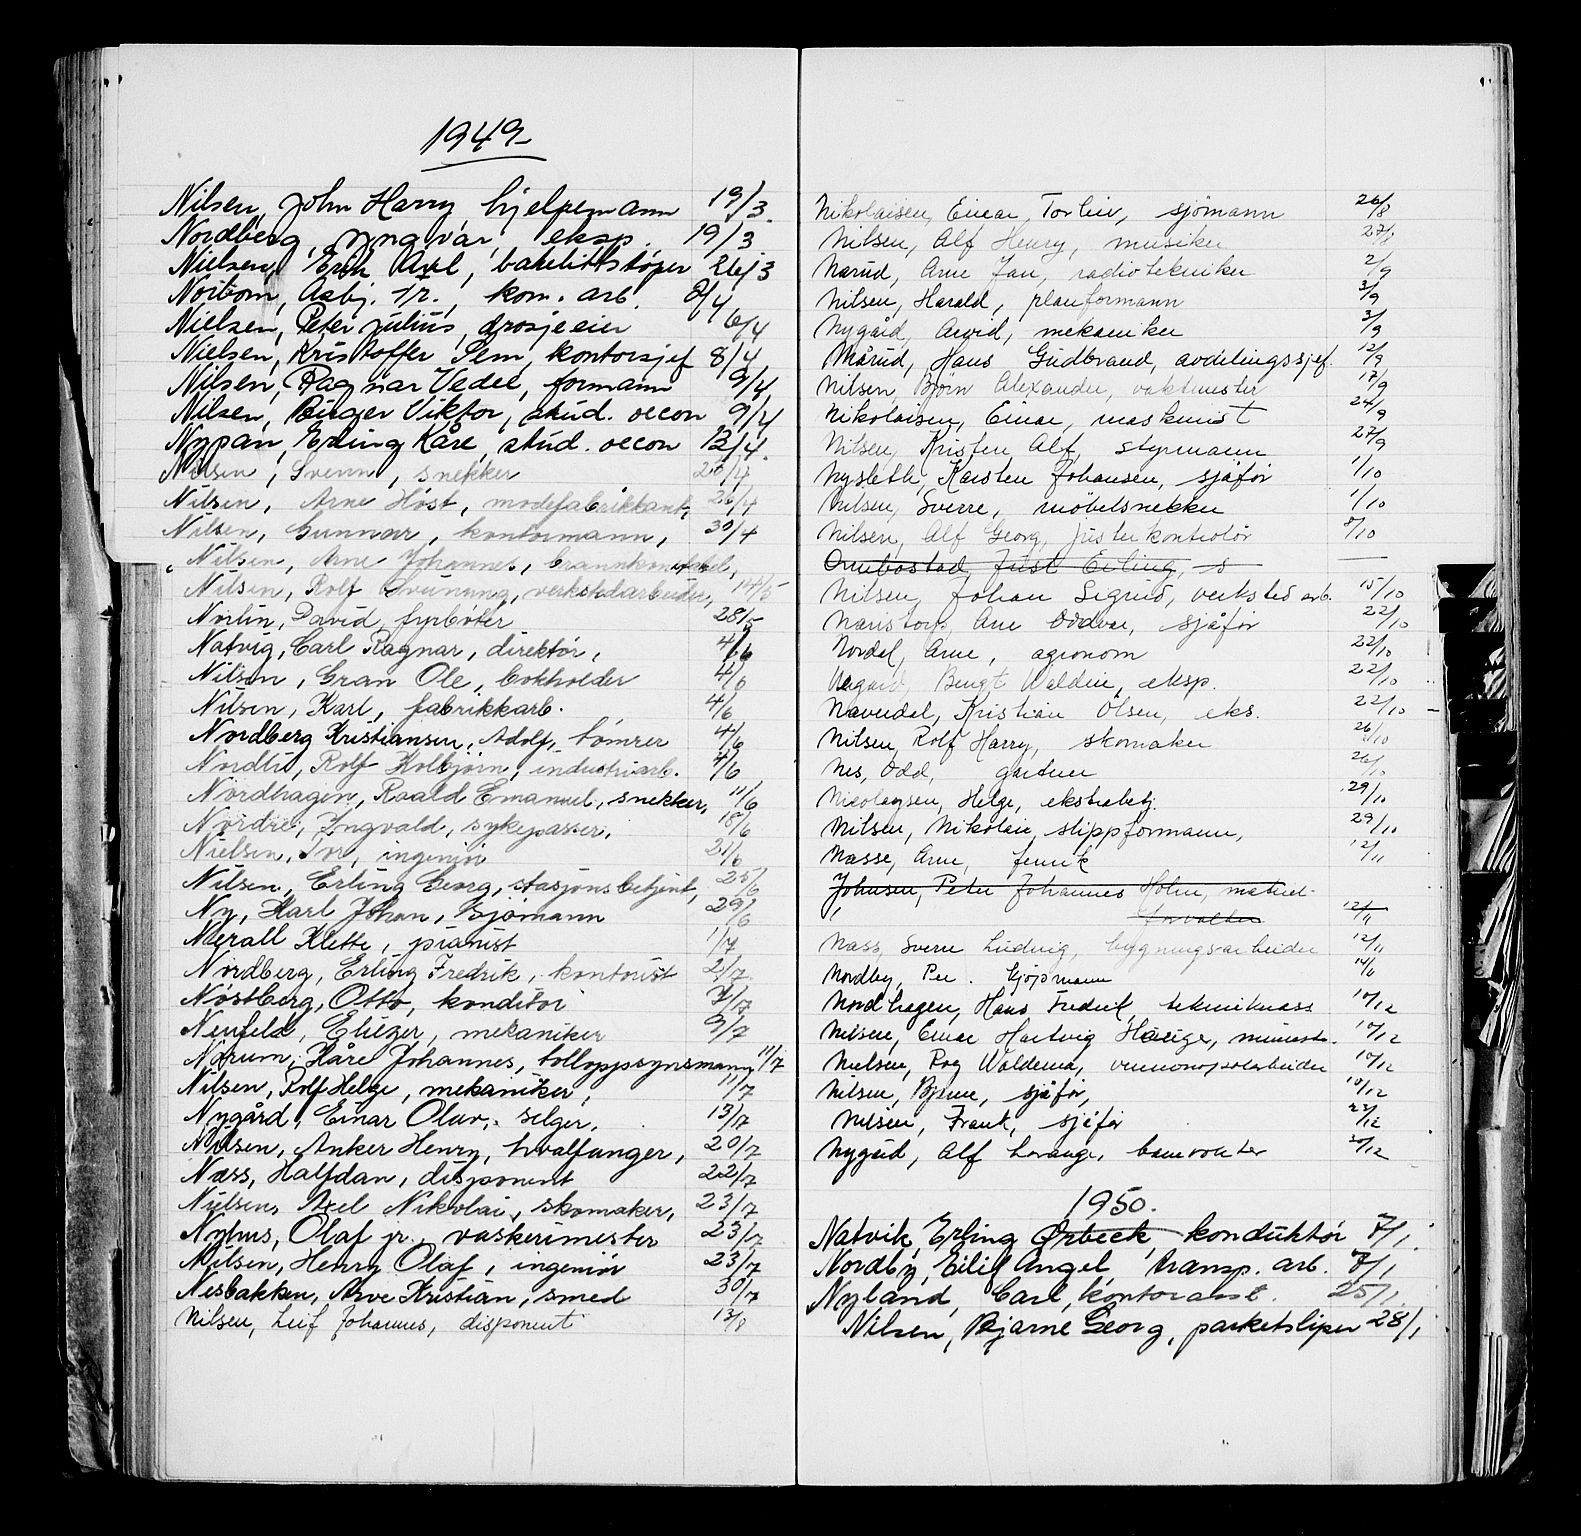 1949
Nilsen, John Harry, hjelpemann 19/3.
Nordberg, Yngvar, eksp. 19/3
Nielsen, Erik Axel, bakelittstøper 26/3
Norbom, Asbj. Fr., kom. arb. 2/4
Nielsen, Peter Julius, drosjeeier 6/4
Nielsen, Kristoffer Sem, kontorsjef 8/4
Nilsen, Ragnar Vedel, formann 9/4
Nilsen, Birger Viktor, stud. oecon 9/4
Nypan, Erling Kåre, stud. oecon 13/4.
Nilsen, Svenn, snekker 20/4
Nilsen, Arne Høst, motefabrikkant, 26/4
Nilsen, Gunnar, kontormann, 30/4
Nilsen, Arne Johannes, brannkonstabel,
Nilsen, Rolf, verkstedarbeider, 14/5
Norlin, David, fyrbøter 28/5
Natvig, Carl Ragnar, direktør, 4/6
Nilsen, Gran Ole, bokholder 4/6
Nilsen, Karl, fabrikkarb. 4/6
Nordberg Kristiansen, Adolf, tømrer 4/6
Nordli, Rolf Kolbjørn, industriarb. 4/6
Nordhagen, Roald Emanuel, snekker, 11/6
Nordre, Yngvald, sykepasser, 18/6
Nielsen, Tor, ingeniør 21/6
Nilsen, Erling Georg, stasjonsbetjent, 25/6
Ny, Karl Johan, sjømann 29/6
Nærall Klette, pianist 1/7
Nordberg, Erling Fredrik, kontorist 2/7
Nøstberg, Otto, konditor 7/7
Neufeld, Eliezer, mekaniker 9/7
Norum, Kåre Johannes, tolloppsynsmann, 11/7
Nilsen, Rolf Helge, mekaniker, 11/7
Nygård, Einar Olav, selger, 13/7
Nilsen, Anker Henry, hvalfanger, 20/7
Næss, Halfdan, disponent 22/7
Nielsen, Axel Nikolai, skomaker, 23/7
Nyhus, Olaf jr., vaskerimester 23/7
Nilsen, Henry Olaf, ingeniør 23/7
Nesbakken, Arve Kristian, smed 30/7
Nilsen, Leif Johannes, disponent 13/8
Nikolaisen, Einar Torleiv, sjømann 26/8
Nilsen, Alf Henry, musiker 27/8
Narud, Arne Jan, radiotekniker 2/9
Nilsen, Harald, planformann 3/9
Nygård, Arvid, mekaniker 3/9
Mårud, Hans Gudbrand, avdelingssjef. 12/9
Nilsen, Bjørn Alexander, vaktmester 17/9
Nikolaisen, Einar, maskinist 24/9
Nilsen, Kristen Alf, styrmann 27/9
Nysleth, Karsten Johansen, sjåfør 1/10
Nilsen, Sverre, møbelsnekker 1/10
Nilsen, Alf Georg, justerkontrolør 8/10
Just Erling, s
Nilsen, Johan Sigurd, verksted arb. 15/10
Arne Oddvar, sjåfør 22/10
Nordal, Arne, agronom 22/10
Nygård, Bengt, eksp. 22/10
Naverdal, Kristian Olsen, eks. 22/10
Nilsen, Rolf Harry, skomaker 26/10
Nes, Odd, gartner 26/10
Nicolaysen, Helge, ekstrabetj. 29/10
Nilsen, Nikolai, slippformann, 29/10
Næsse, Arne, fenrik 12/11
Johnsen, Peter Johannes Holm, materiel-
forvalter 12/11
Næss, Sverre Ludvig, bygningsarbeider 12/11
Nordby, Per. kjøpmann 14/11
Nordhagen, Hans Fredrik, teknikerass 10/12
Nilsen, Einar Hartvig Hauge, 10/12
Nielsen, Roy Waldemar, vinmonopolarbeider 10/12
Nilsen, Bjarne, sjåfør, 10/12
Nilsen, Frank, sjåfør 22/12
Nygård, Alf, banevokter /12
1950.
Natvik, Erling Ørbeck, konduktør 7/1.
Nordby, Eilif Angel, transp. arb. 7/1
Nyland, Carl, kontorasst. 25/1
Nilsen, Bjarne Georg, parketsliper 28/1